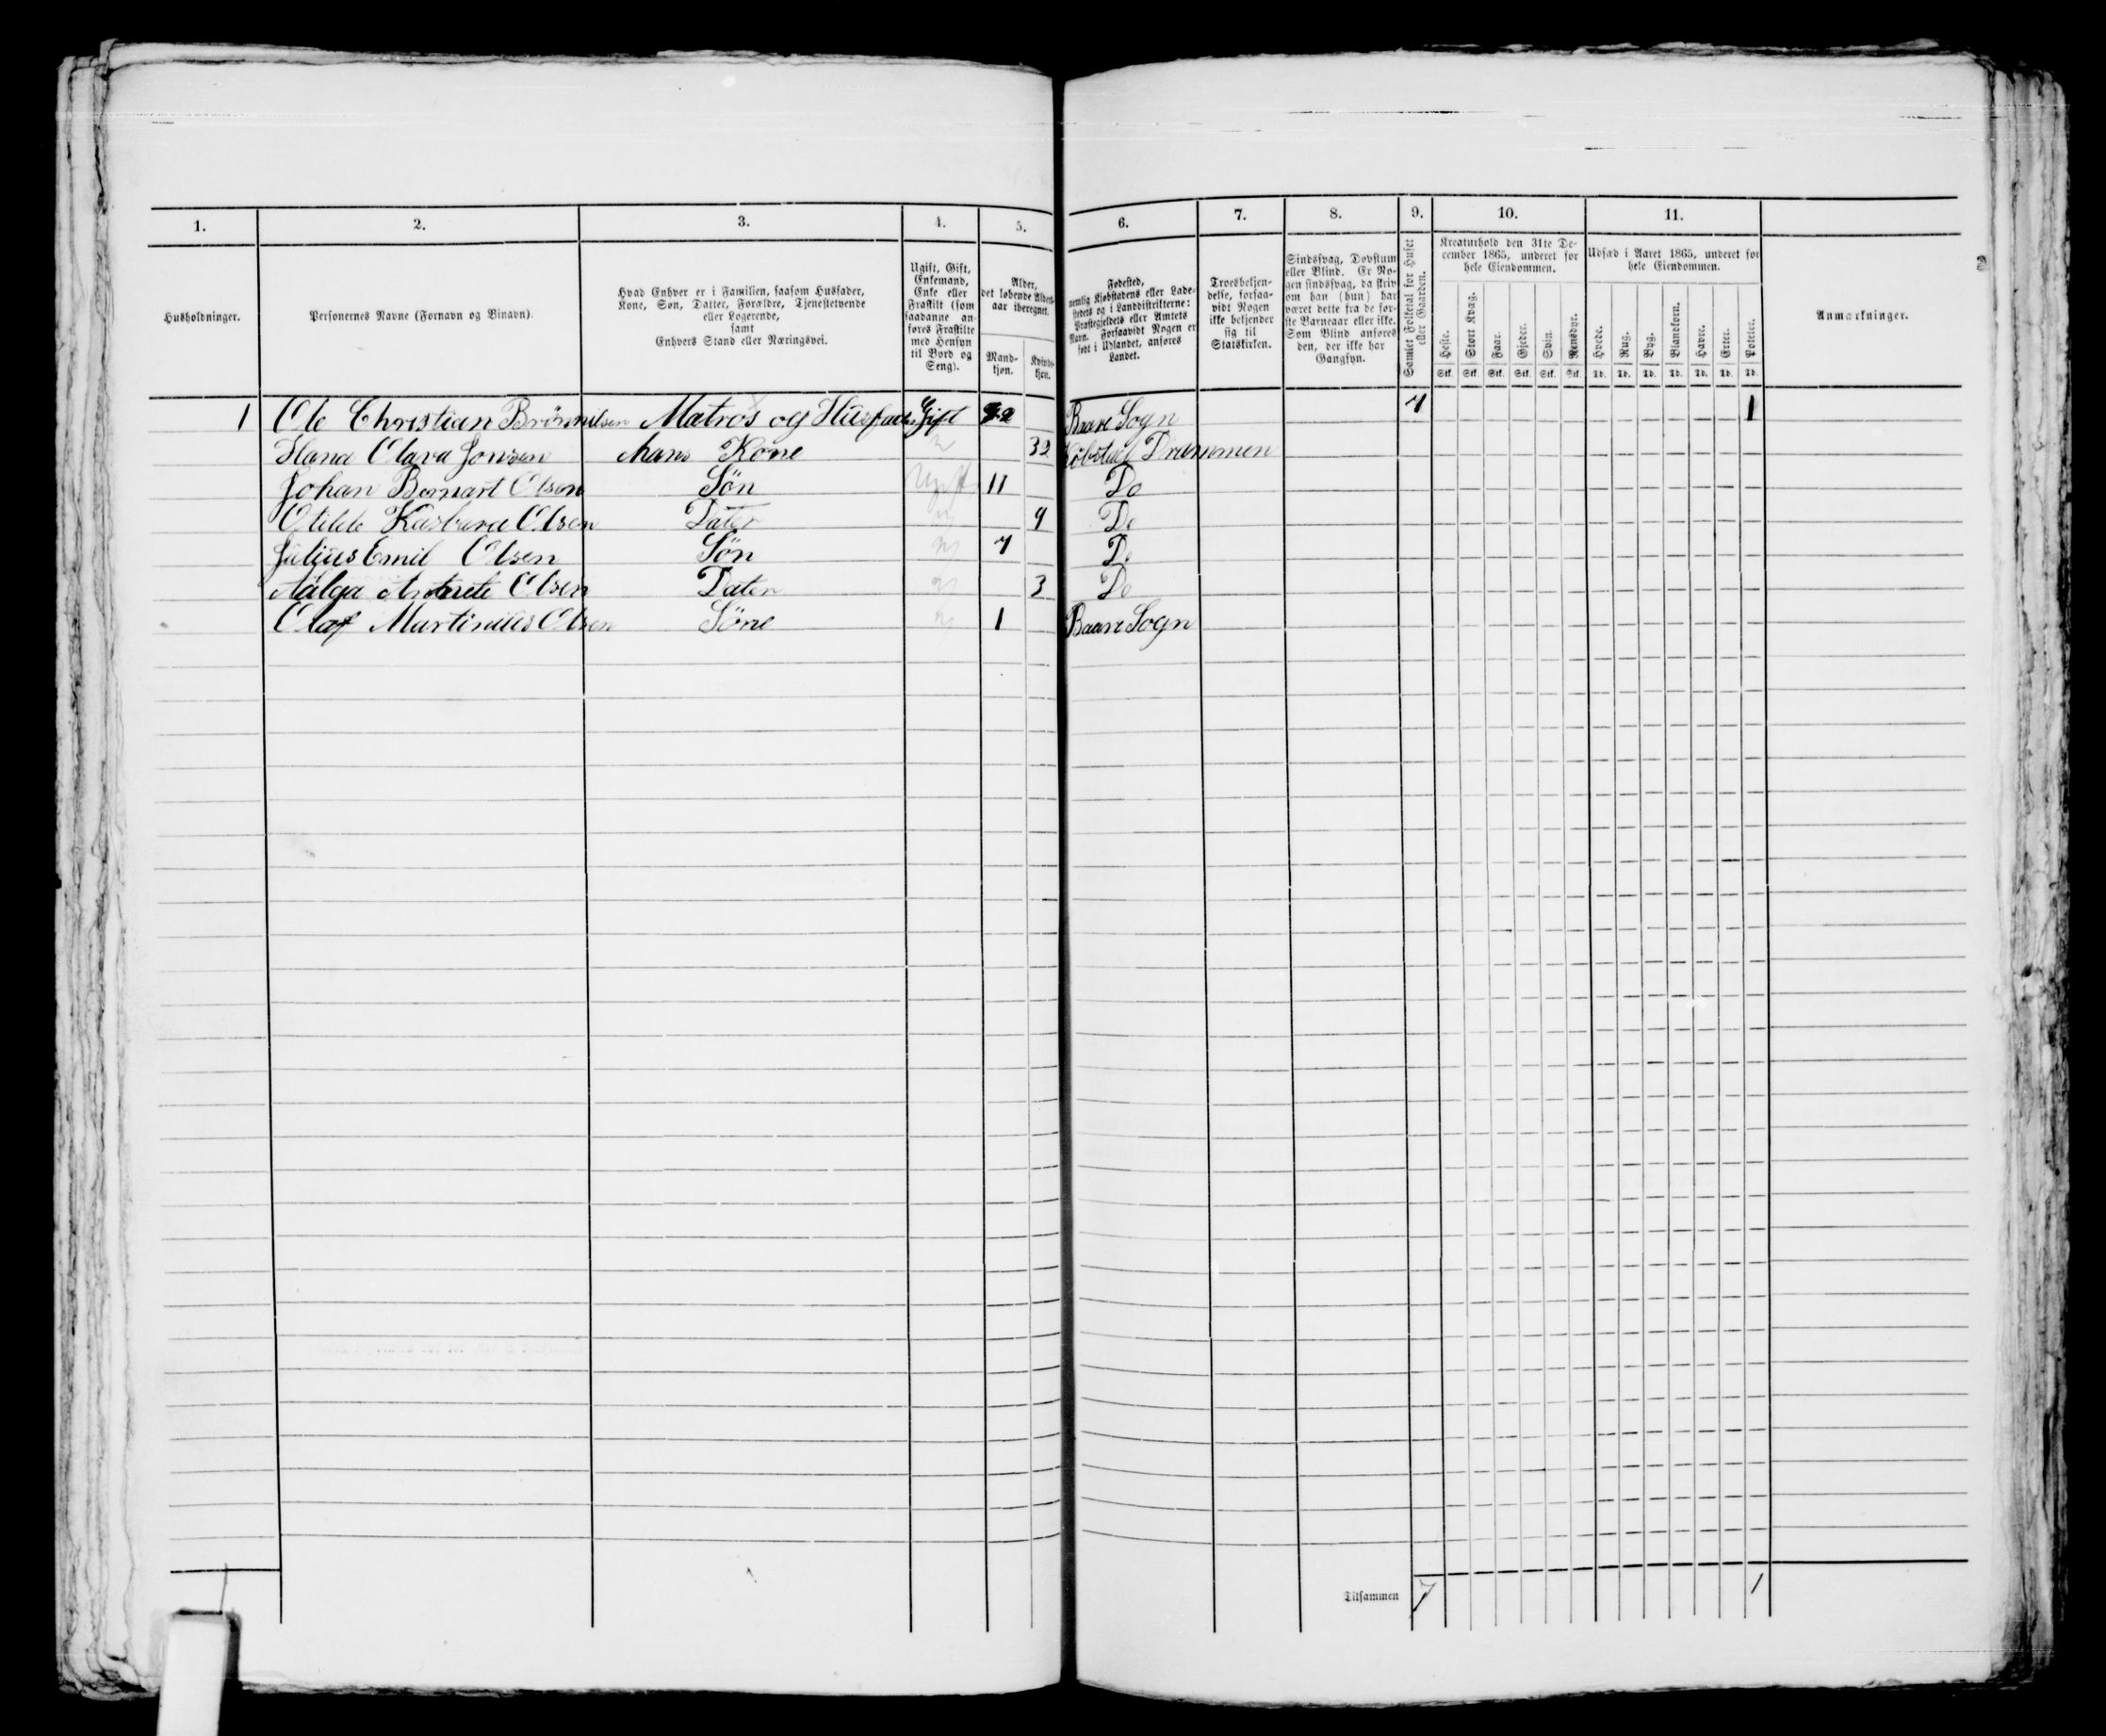 1. 2. 3. 4. 5. 6. 7. 8. 9. 10. 11.
Husholdninger.
Personernes Navne (Fornavn og Binavn).
Hvad Enhver er i Familien, saasom Husfader,
Kone, Søn, Datter, Forældre, Tjenestetyende
eller Logerende,
samt
Enhvers Stand eller Næringsvei.
Ugift, Gift,
Enkemand,
Enke eller
Fraskilt (som
saadanne an-
føres Fraskilte
med Hensyn
til Bord og
Seng).
Alder,
det løbende Alders-
aar iberegnet.
Mand-
kjøn.
Kvinde-
kjøn.
Fødested,
nemlig Kjøbstadens eller Lade-
stedets og i Landdistrikterne:
Præstegjeldets eller Amtets
Navn. Forsaavidt Nogen er
født i Udlandet, anføres
Landet.
Troesbekjen-
delse, forsaa-
vidt Nogen
ikke bekjender
sig til
Statskirken.
Sindssvag, Døvstum
eller Blind. Er No-
gen sindssvag, da skriv
om han (hun) har
været dette fra de før-
ste Barneaar eller ikke.
Som Blind anføres
den, der ikke har
Gangsyn.
Samlet Folketal for Huset
eller Gaarden.
Kreaturhold den 31te De-
cember 1865, underet for
hele Eiendommen.
Heste. Stort Kvæg. Faar. Gjeder. Svin. Rensdyr.
Stk. Stk. Stk. Stk. Stk. Stk.
Udsæd i Aaret 1865, underet for
hele Eiendommen.
Hvede. Rug. Byg. Blandkorn. Havre. Erter. Poteter.
Td. Td. Td. Td. Td. Td. Td.
Anmærkninger.
1 Ole Christian Matros og Husfader Gift Baare Sogn 7 1
Hana Clara Jonsen hans Kone 32 Drammen
Johan Bernart Olsen Søn Ugift 11 Do
Olsen Dater 9 Do
Julius Emil Olsen Søn 7 Do
Olsen Dater 3 Do
Olaf Martinius Olsen Søne 1 Baare Sogn
1 Tilsammen 7 1